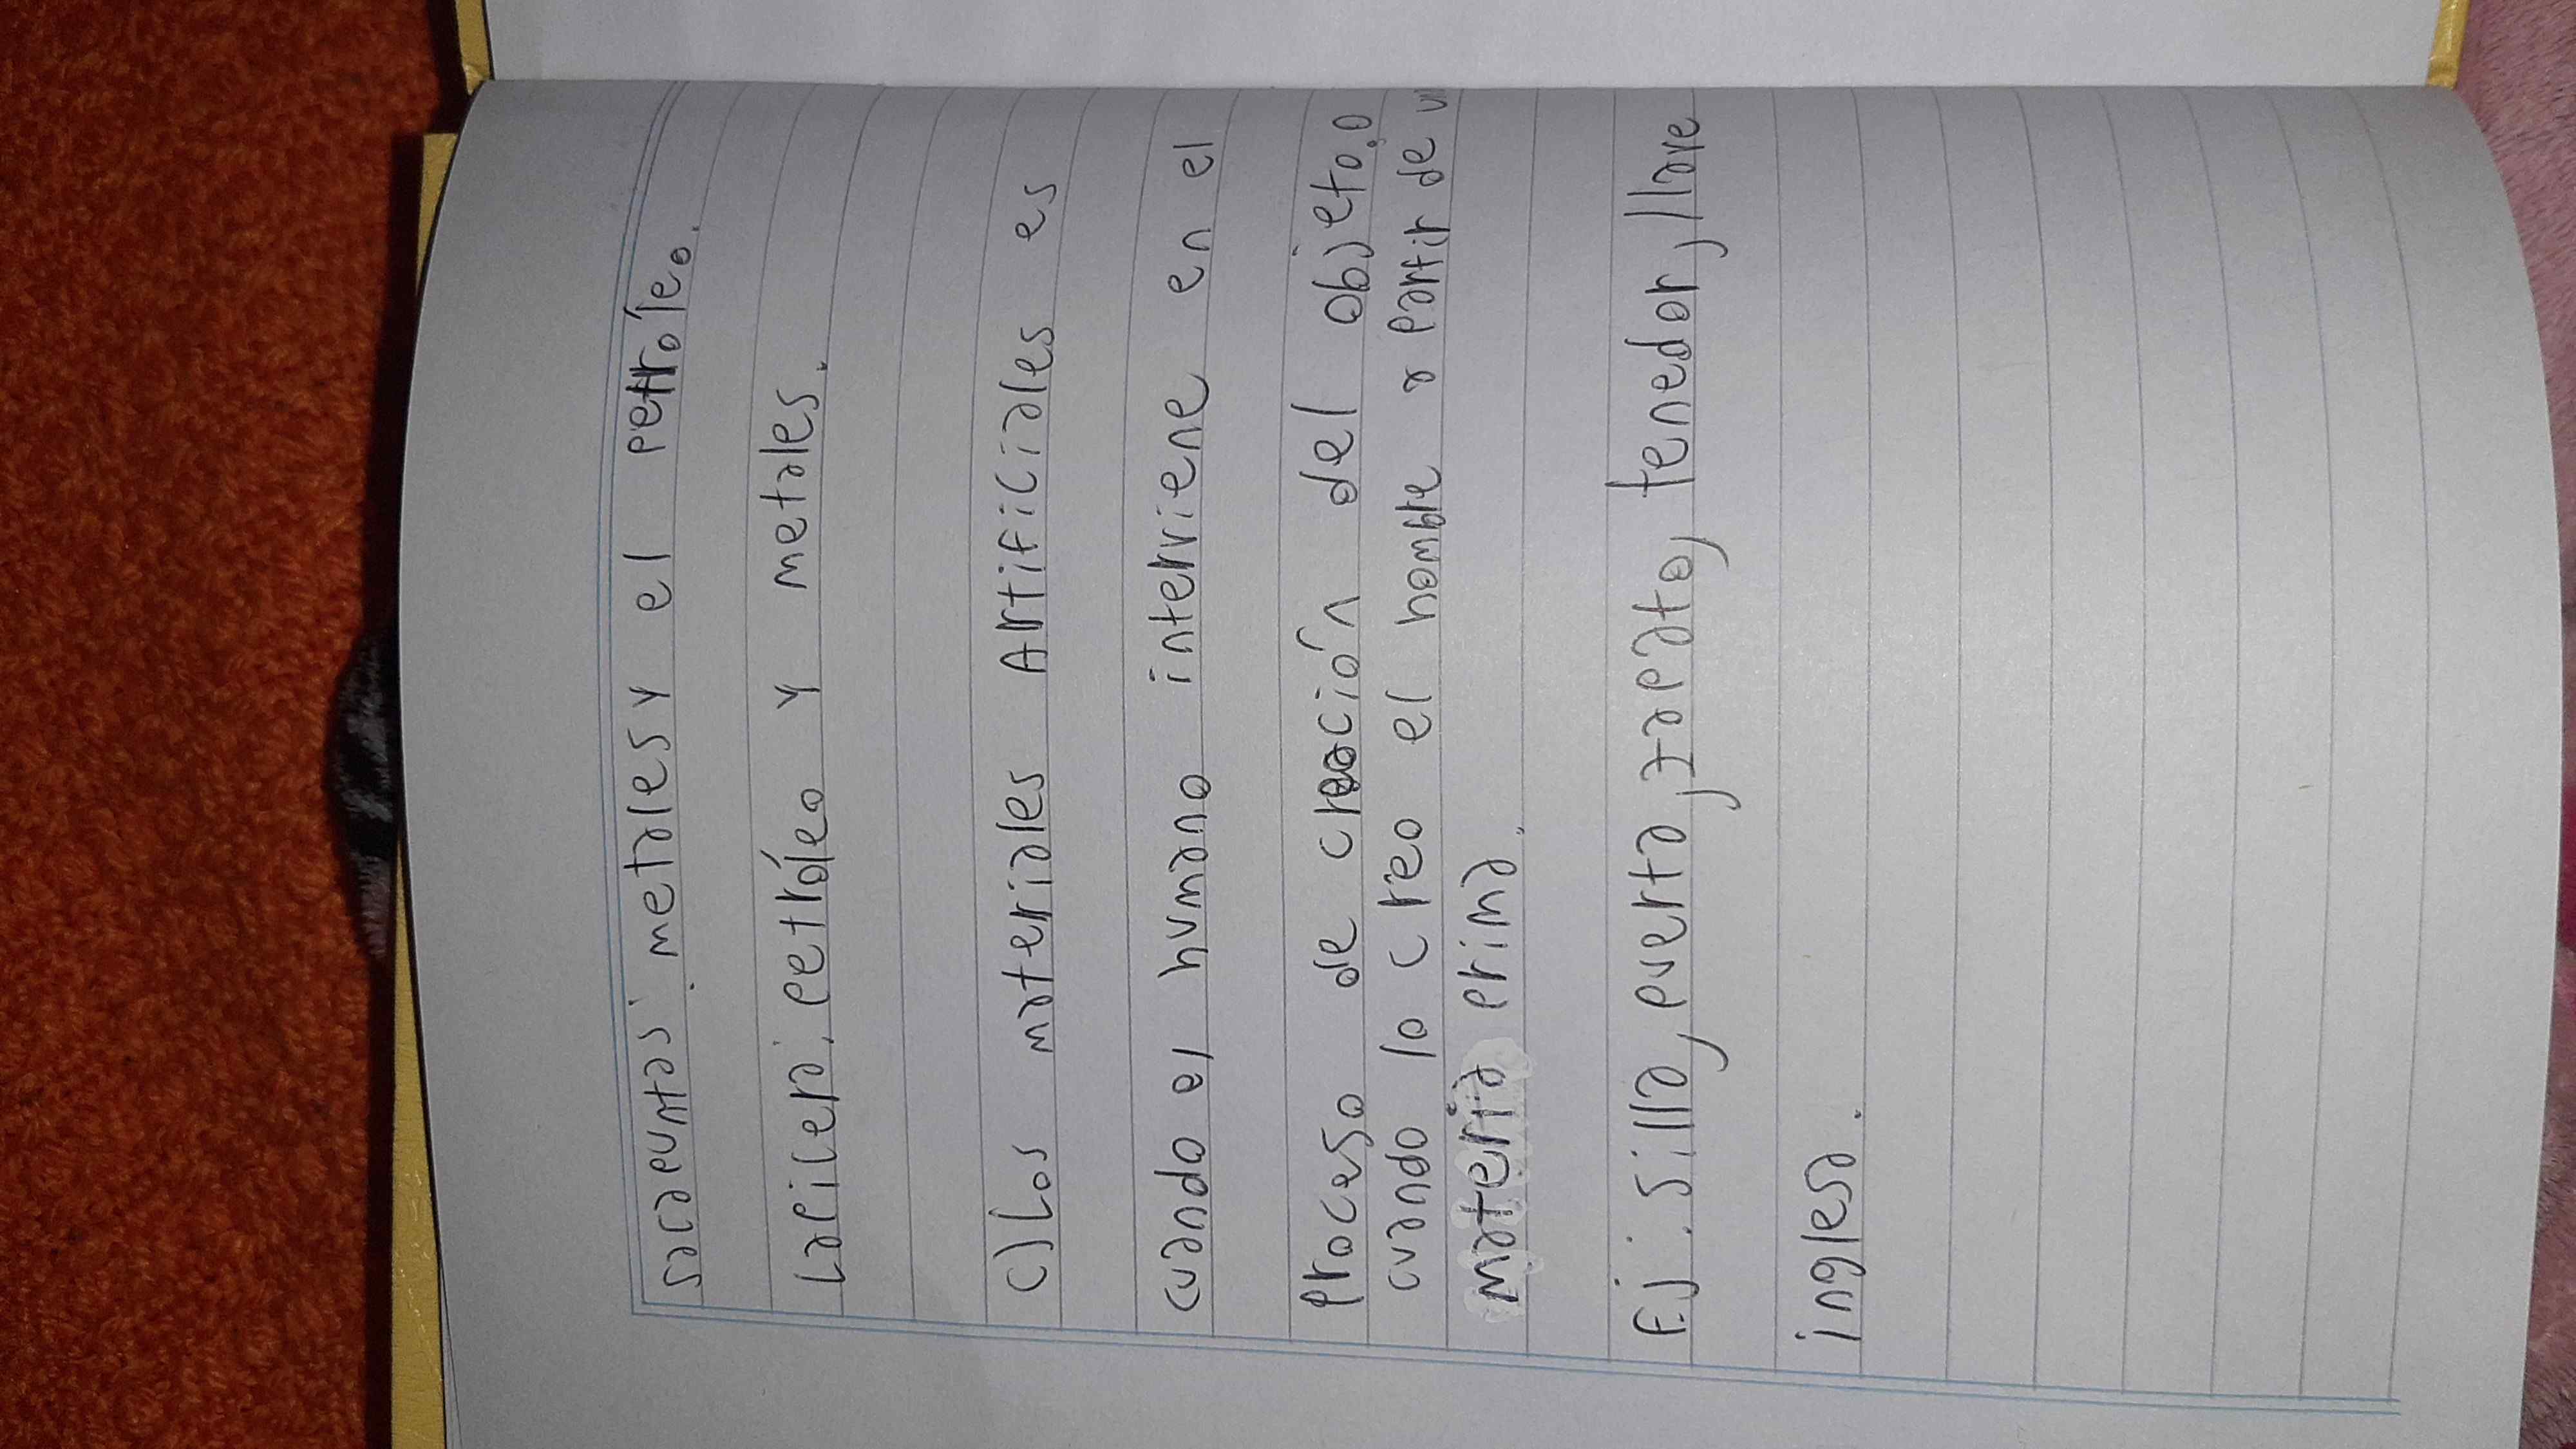 sacapuntas: metales y el petróleo.
Lapicera: petróleo y metales.
C) Los materiales Artificiales es
cuando el humano interviene en el
Proceso de creación del objeto. o
cuando lo creo el hombre a partir de un
materia prima.
Ej: silla, puerta, zapato, tenedor, llave
inglesa.